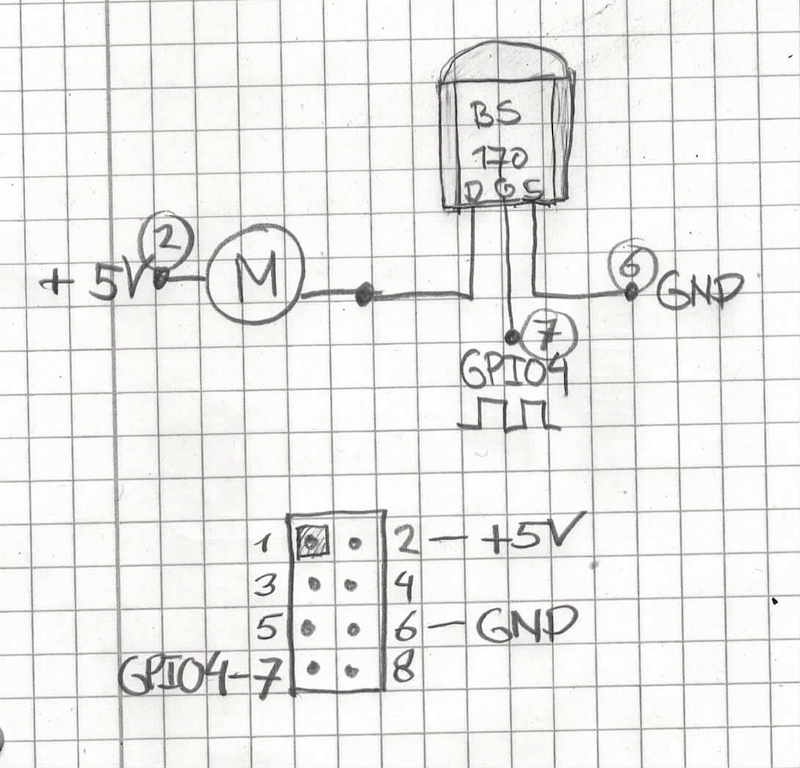 BS
170
D G S
2
+ 5V
M
6
GND
7
GPIO4
1 2 - +5V
3 4
5 6 - GND
GPIO4-7 8